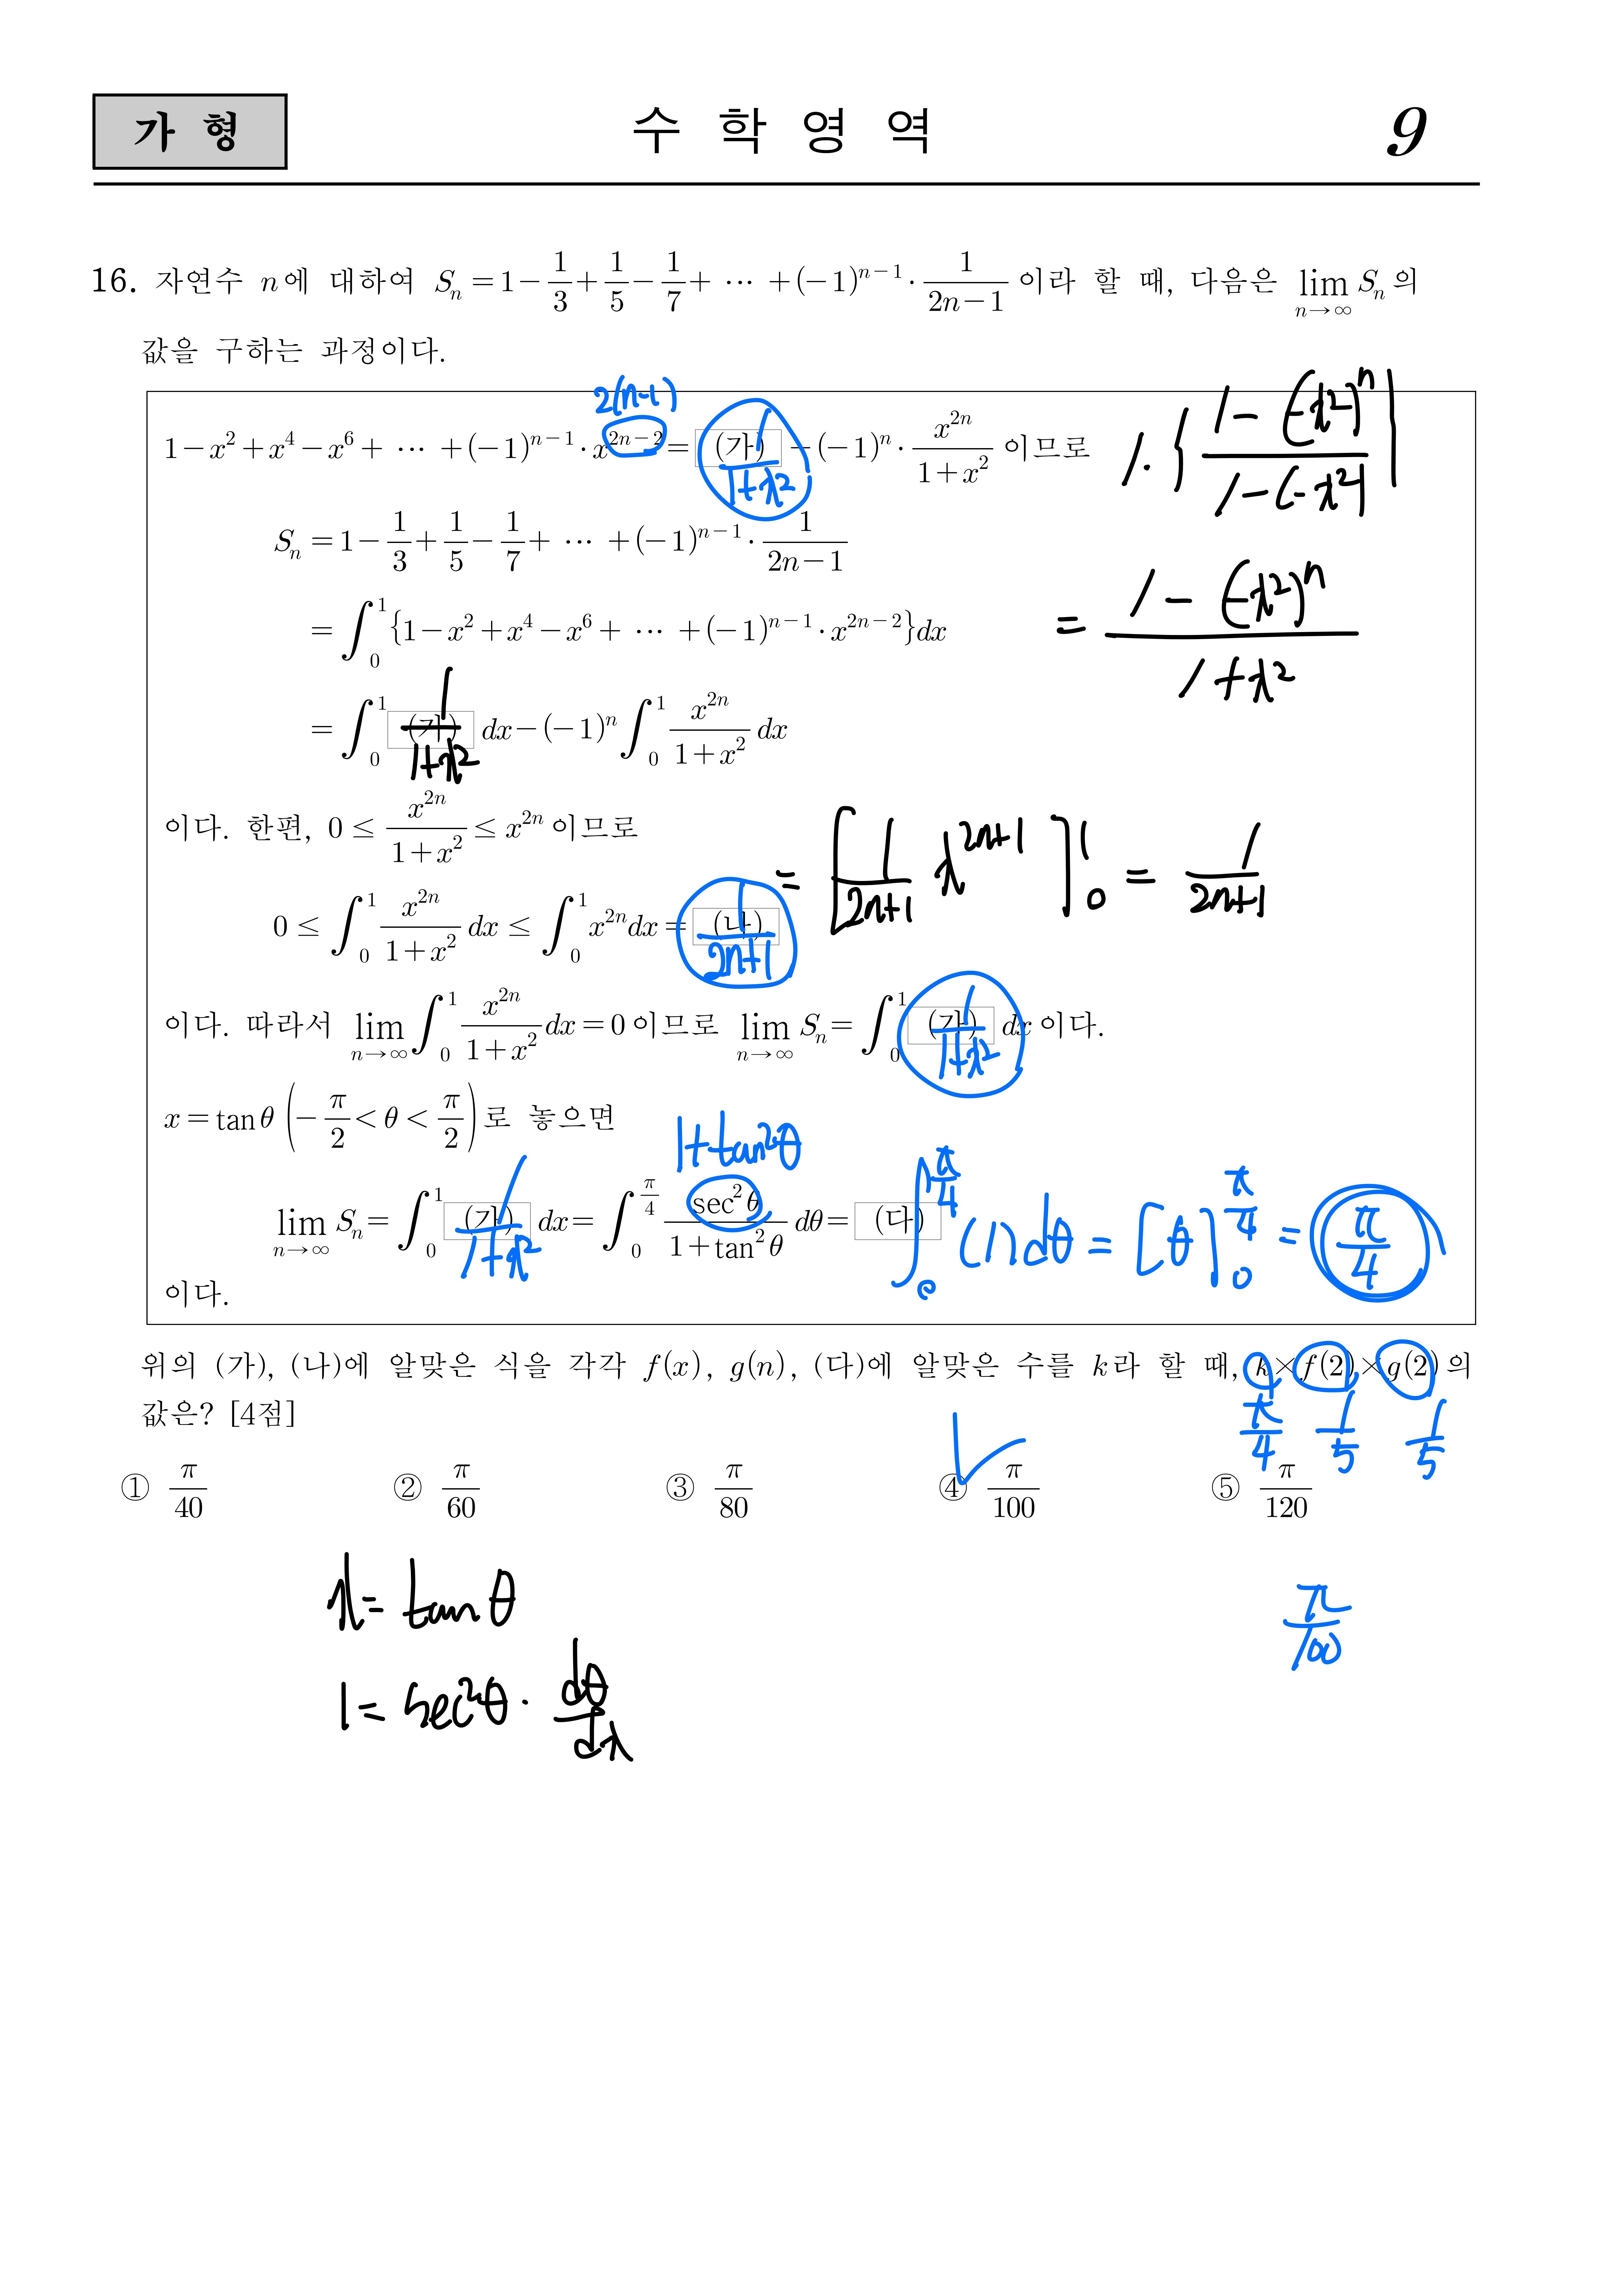 가 형
수 학 영 역
9
16. 자연수 n에 대하여 Sₙ = 1 − 1/3 + 1/5 − 1/7 + ⋯ + (−1)ⁿ⁻¹ · 1/(2n−1) 이라 할 때, 다음은 lim_{n→∞} Sₙ의
값을 구하는 과정이다.
2(n-1)
1 − x² + x⁴ − x⁶ + ⋯ + (−1)ⁿ⁻¹ · x²ⁿ⁻² = (가) − (−1)ⁿ · x²ⁿ/(1+x²) 이므로
1/(1+x²)
1·{(1−(−x²)ⁿ)/(1−(−x²))}
Sₙ = 1 − 1/3 + 1/5 − 1/7 + ⋯ + (−1)ⁿ⁻¹ · 1/(2n−1)
= (1−(−x²)ⁿ)/(1+x²)
= ∫₀¹ {1 − x² + x⁴ − x⁶ + ⋯ + (−1)ⁿ⁻¹ · x²ⁿ⁻²}dx
= ∫₀¹ (가) dx − (−1)ⁿ ∫₀¹ x²ⁿ/(1+x²) dx
1/(1+x²)
이다. 한편, 0 ≤ x²ⁿ/(1+x²) ≤ x²ⁿ 이므로
0 ≤ ∫₀¹ x²ⁿ/(1+x²) dx ≤ ∫₀¹ x²ⁿdx = (나)
1/(2n+1)
= [1/(2n+1) x²ⁿ⁺¹]₀¹ = 1/(2n+1)
이다. 따라서 lim_{n→∞} ∫₀¹ x²ⁿ/(1+x²) dx = 0 이므로 lim_{n→∞} Sₙ = ∫₀¹ (가) dx 이다.
1/(1+x²)
x = tanθ (−π/2 < θ < π/2)로 놓으면
1+tan²θ
lim_{n→∞} Sₙ = ∫₀¹ (가) dx = ∫₀^{π/4} sec²θ/(1+tan²θ) dθ = (다)
1/(1+x²)
∫₀^{π/4} (1)dθ = [θ]₀^{π/4} = π/4
이다.
위의 (가), (나)에 알맞은 식을 각각 f(x), g(n), (다)에 알맞은 수를 k라 할 때, k×f(2)×g(2)의
값은? [4점]
π/4 1/5 1/5
① π/40 ② π/60 ③ π/80 ④ π/100 ⑤ π/120
x = tanθ
π/100
1 = sec²θ · dθ/dx